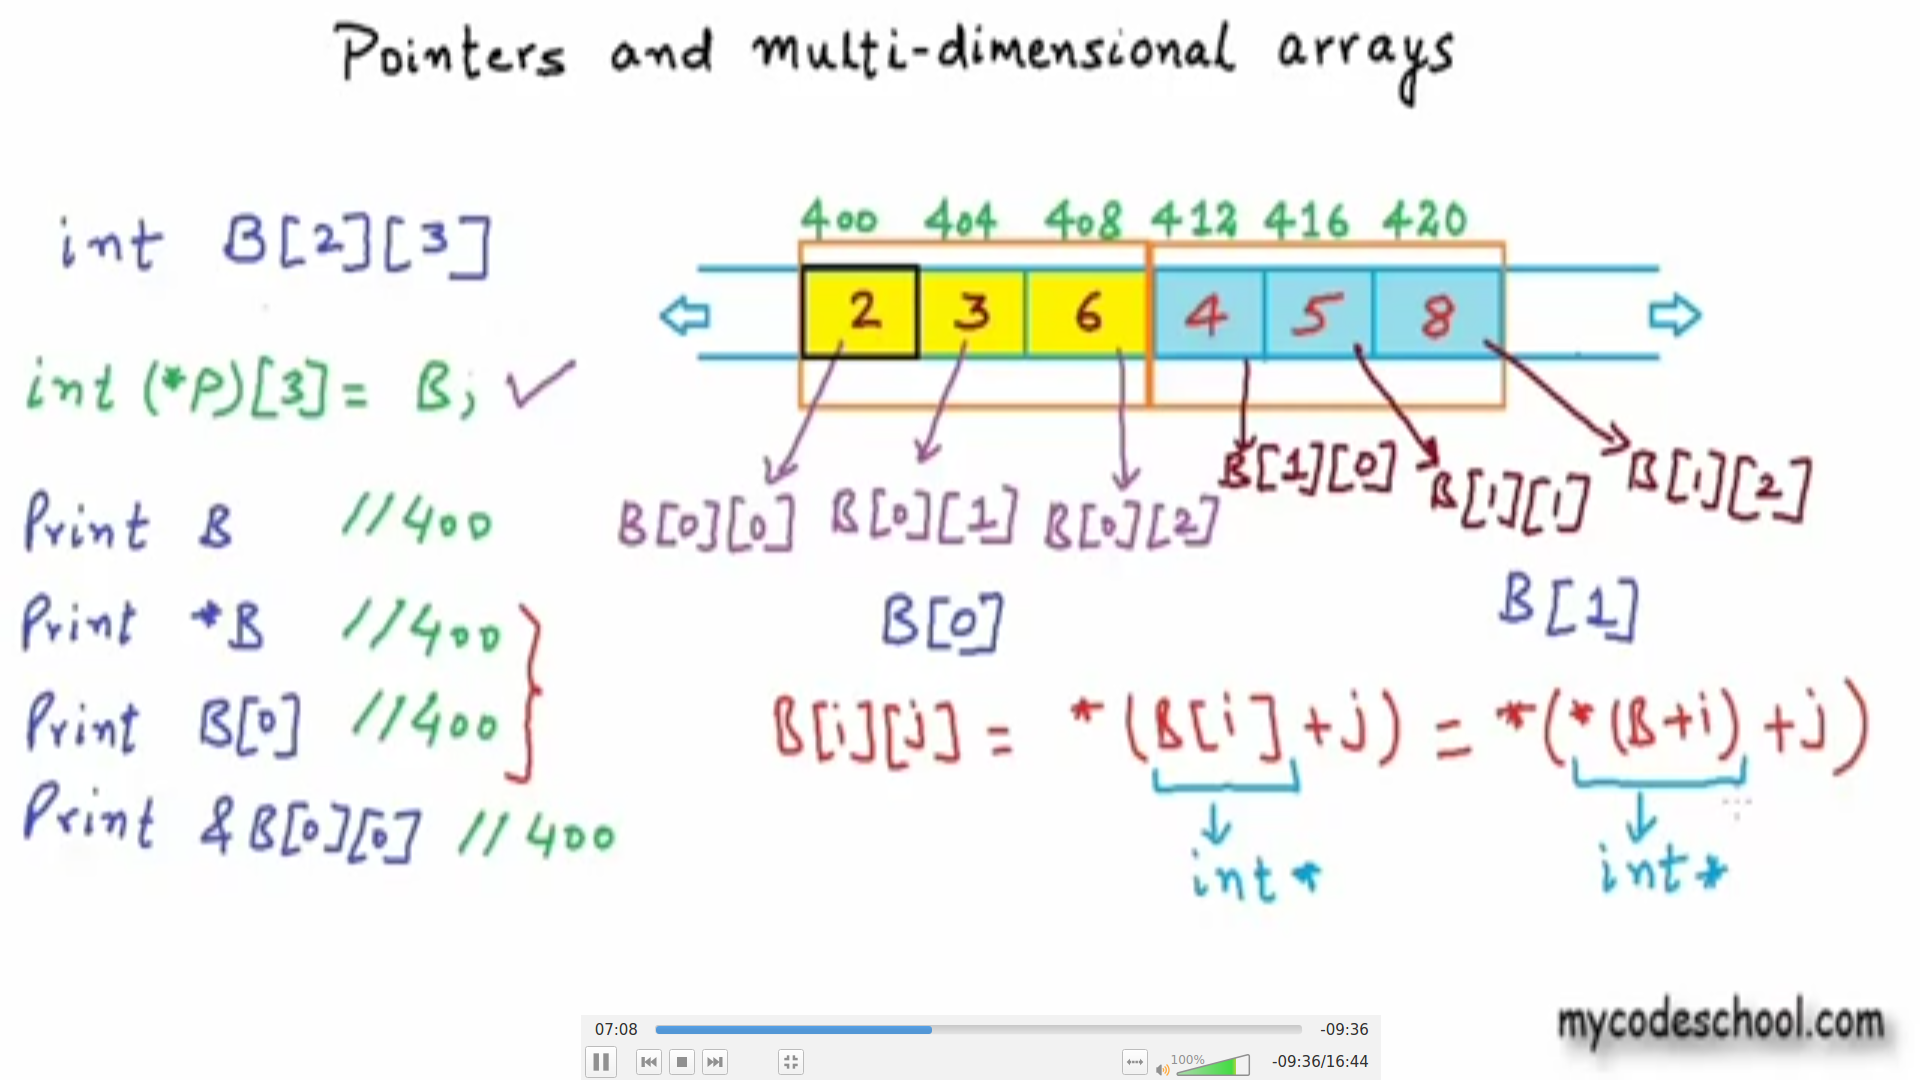 Pointers and multi-dimensional arrays
int B[2][3]
int (*P)[3] = B; ✓
Print B //400
Print *B //400
Print B[0] //400
Print &B[0][0] //400
400 404 408 412 416 420
2 3 6 4 5 8
B[0][0] B[0][1] B[0][2] B[1][0] B[1][1] B[1][2]
B[0] B[1]
B[i][j] = *(B[i]+j) = *(*(B+i)+j)
int* int*
mycodeschool.com
07:08 -09:36
100% -09:36/16:44